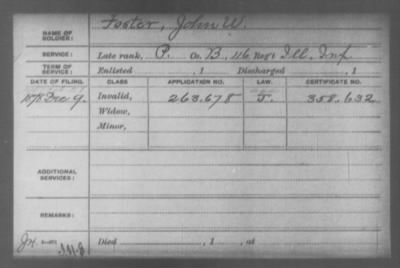 NAME OF SOLDIER: Foster, John W.
SERVICE: Late rank, P. Co. B, 116 Reg't Ill. Inf.
TERM OF SERVICE: Enlisted , 1 Discharged , 1
DATE OF FILING. CLASS. APPLICATION NO. LAW. CERTIFICATE NO.
1878 Dec 9. Invalid, 263.678 J. 358.632
Widow,
Minor,
ADDITIONAL SERVICES:
REMARKS:
Died , 1 , at